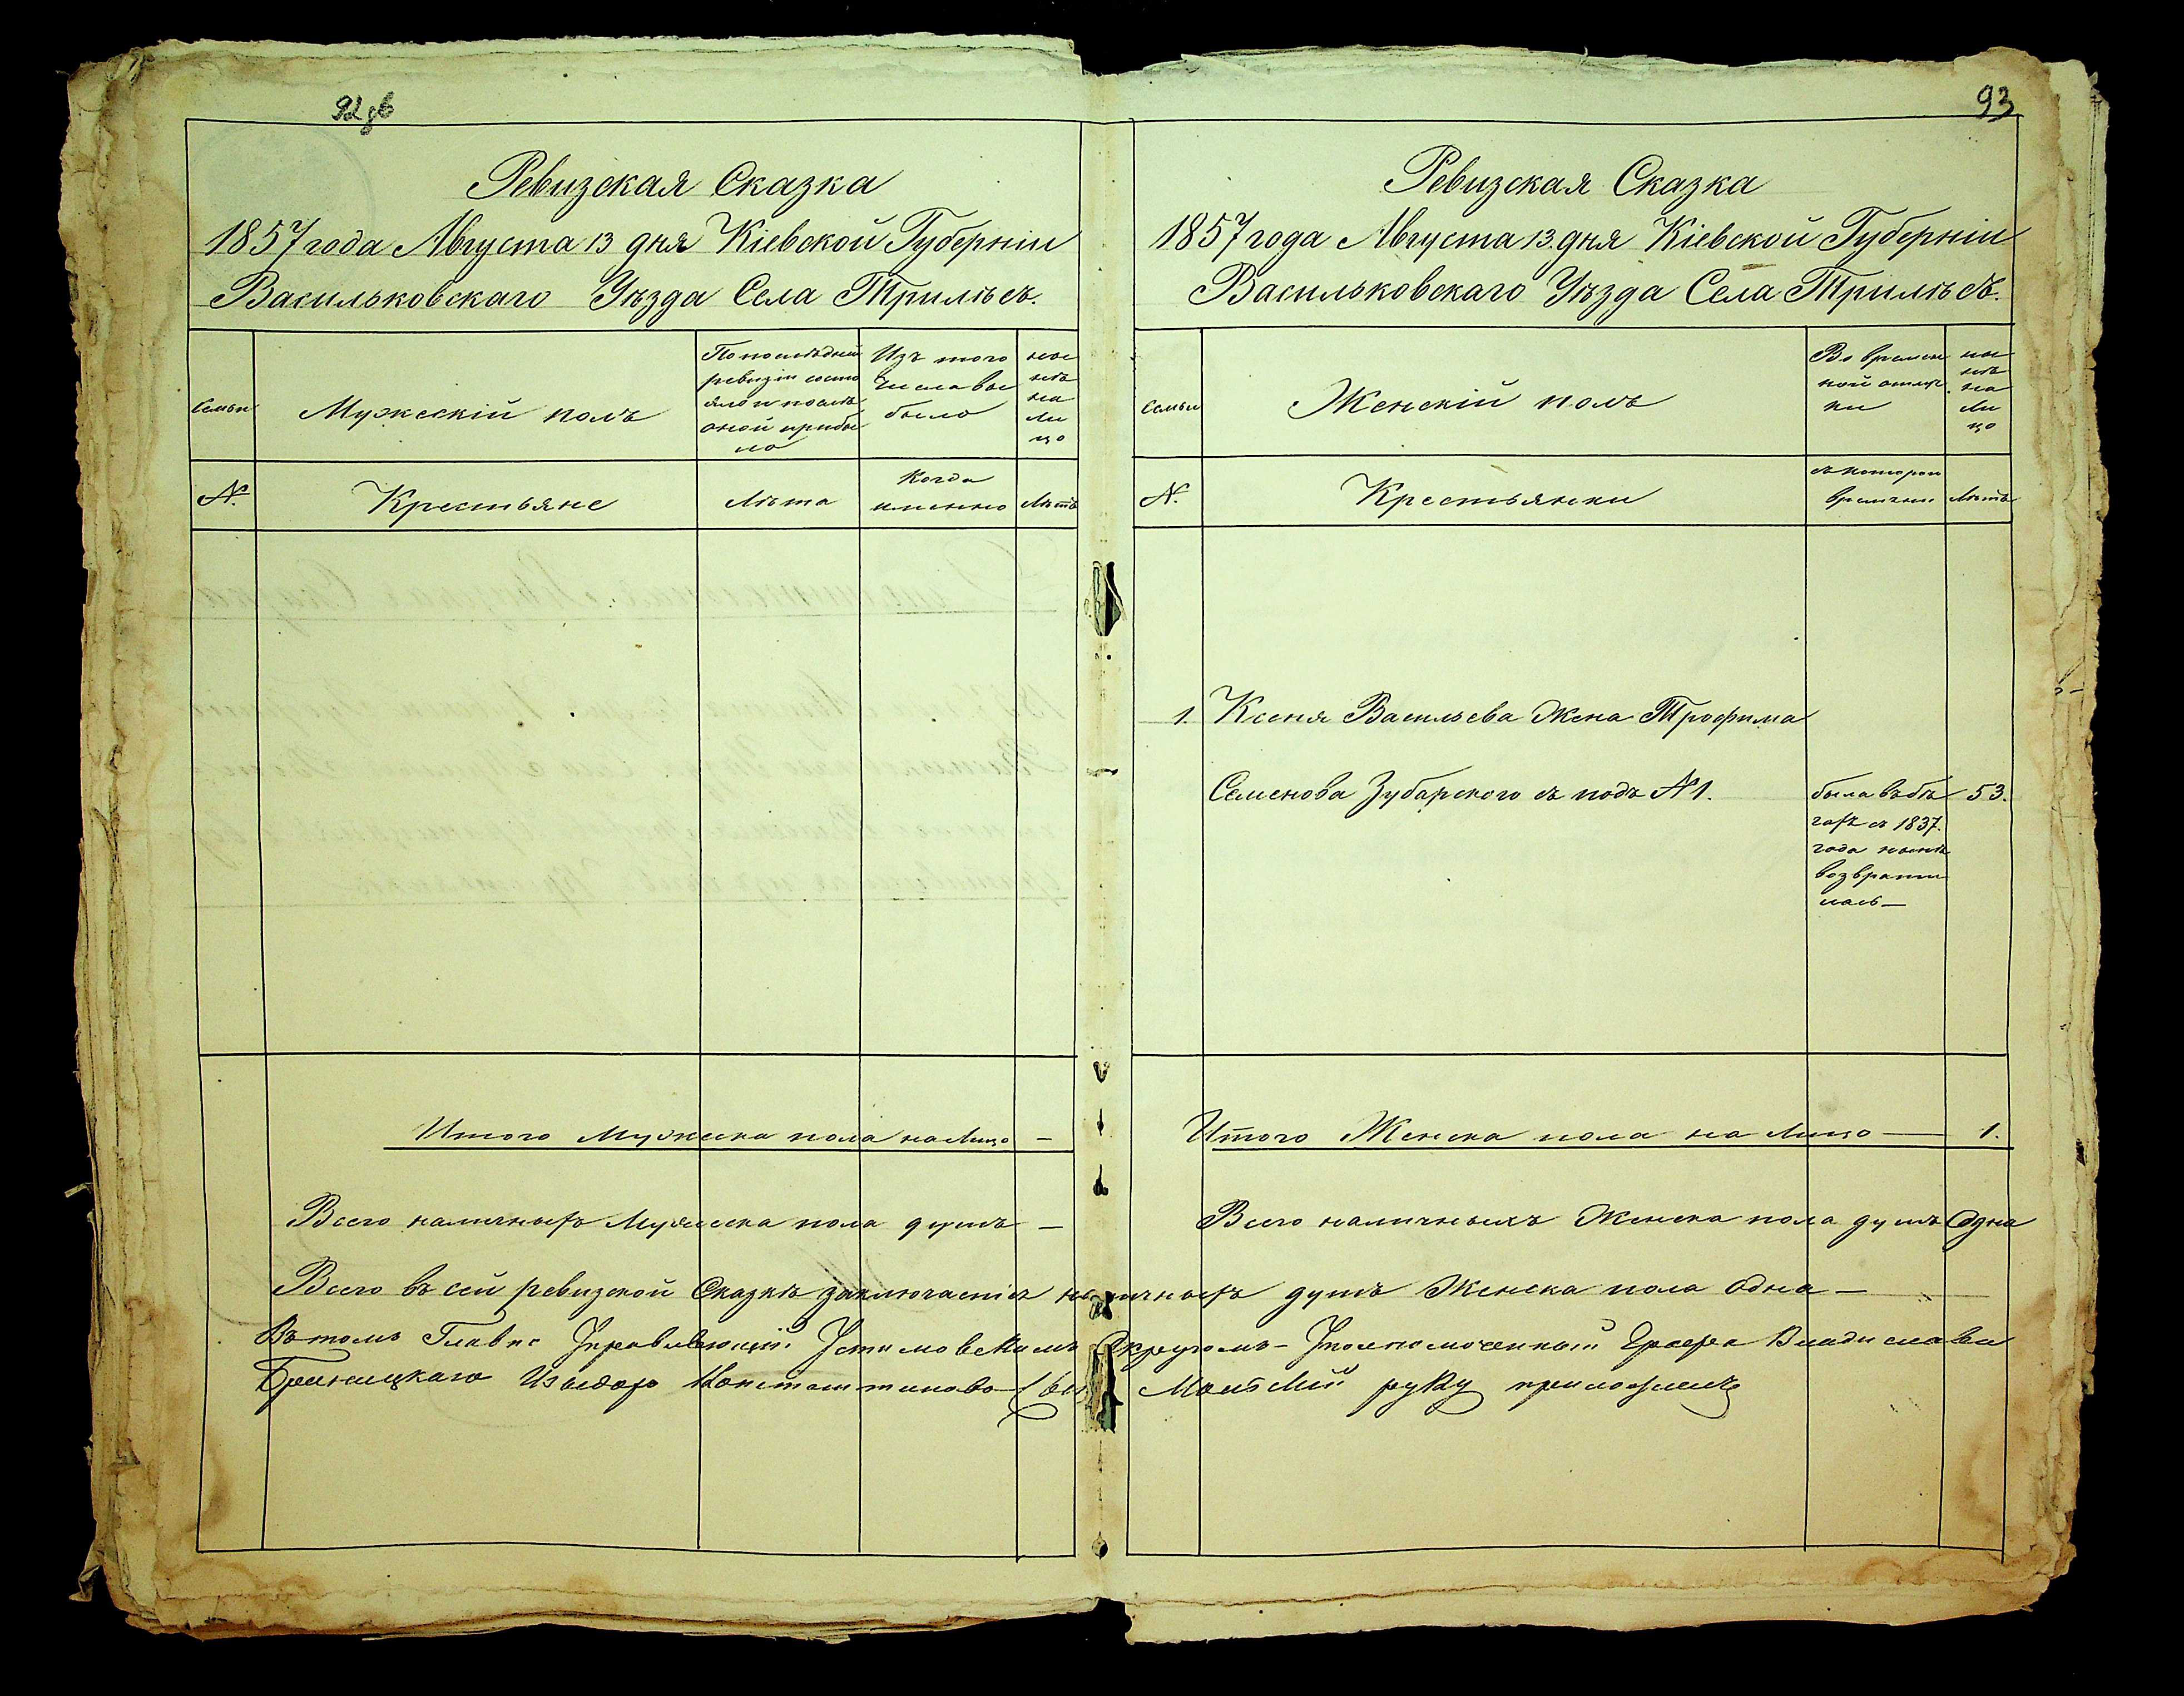 92 об
Ревизская Сказка
1857 года Августа 13 дня Кіевской Губерніи
Васильковскаго Уѣзда Села Трилѣсъ.
Семьи
Мужескій полъ
По послѣдней
ревизіи состо
яло и послѣ
оной прибы
ло
Изъ того
числа вы
было
ны
нѣ
на
ли
цо
№.
Крестьяне
Лѣта
Когда
именно
Лѣтъ
Итого Мужеска пола на Лицо —
Всего наличныхъ Мужеска пола душъ —
93
Ревизская Сказка
1857 года Августа 13. дня Кіевской Губерніи
Васильковскаго Уѣзда Села Трилѣсъ.
Семьи
Женскій полъ
Во времен
ной отлуч
ки
ны
нѣ
на
Ли
цо
№.
Крестьянки
съ котораго
времени
Лѣтъ
1. Ксеня Васильева Жена Трофима
Семенова Зубарского съ подъ № 1.
была въ бѣ
гахъ съ 1837.
года нынѣ
возврати
лась —
53.
Итого Женска пола на Лицо — 1.
Всего наличныхъ Женска пола душъ Одна
Всего въ сей ревизской Сказкѣ заключается наличныхъ душъ Женска пола Одна —
Въ томъ Главно Управляющій Устимовскимъ Округомъ - Уполномоченный Графа Владислава
Браницкаго Изыдоръ Константиновъ руку приложилъ